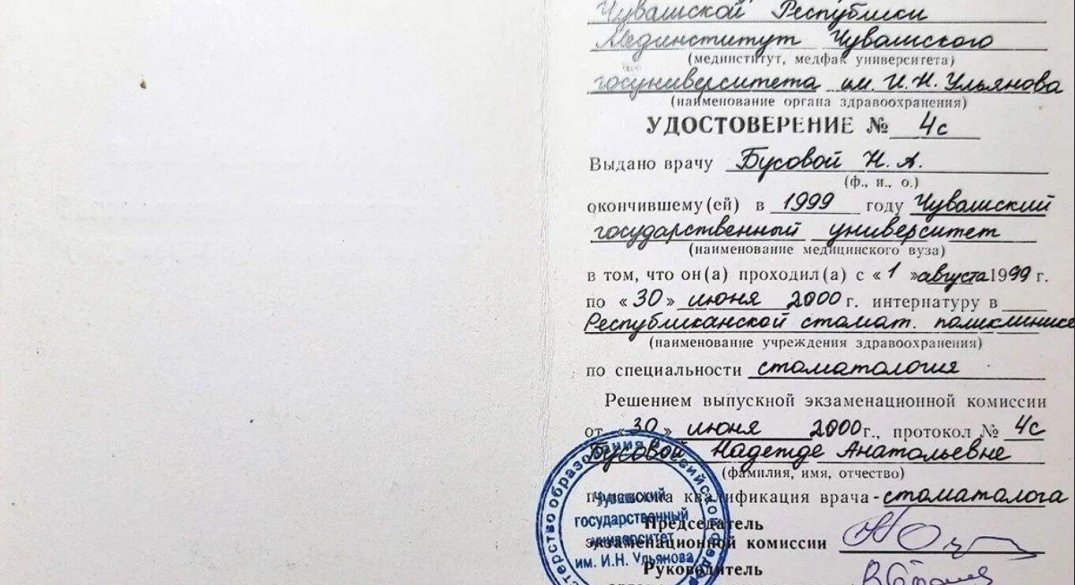 Чувашской Республики
Мединститут Чувашского
(мединститут, медфак университета)
госуниверситета им. И. Н. Ульянова
(наименование органа здравоохранения)
УДОСТОВЕРЕНИЕ № 4с
Выдано врачу Бусовой Н. А.
(ф., и., о.)
окончившему(ей) в 1999 году Чувашский
государственный университет
(наименование медицинского вуза)
в том, что он(а) проходил(а) с «1» августа 1999 г.
по «30» июня 2000 г. интернатуру в
Республиканской стомат. поликлинике
(наименование учреждения здравоохранения)
по специальности стоматология
Решением выпускной экзаменационной комиссии
от «30» июня 2000 г., протокол № 4с
Бусовой Надежде Анатольевне
(фамилия, имя, отчество)
присвоена квалификация врача-стоматолога
Председатель
экзаменационной комиссии
Руководитель
Чувашский
государственный
университет
им. И.Н. Ульянова